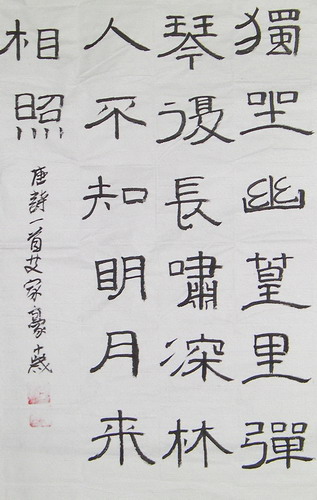 獨坐幽篁里彈
琴復長嘯深林
人不知明月来
相照
唐詩一首艾家豪十歲